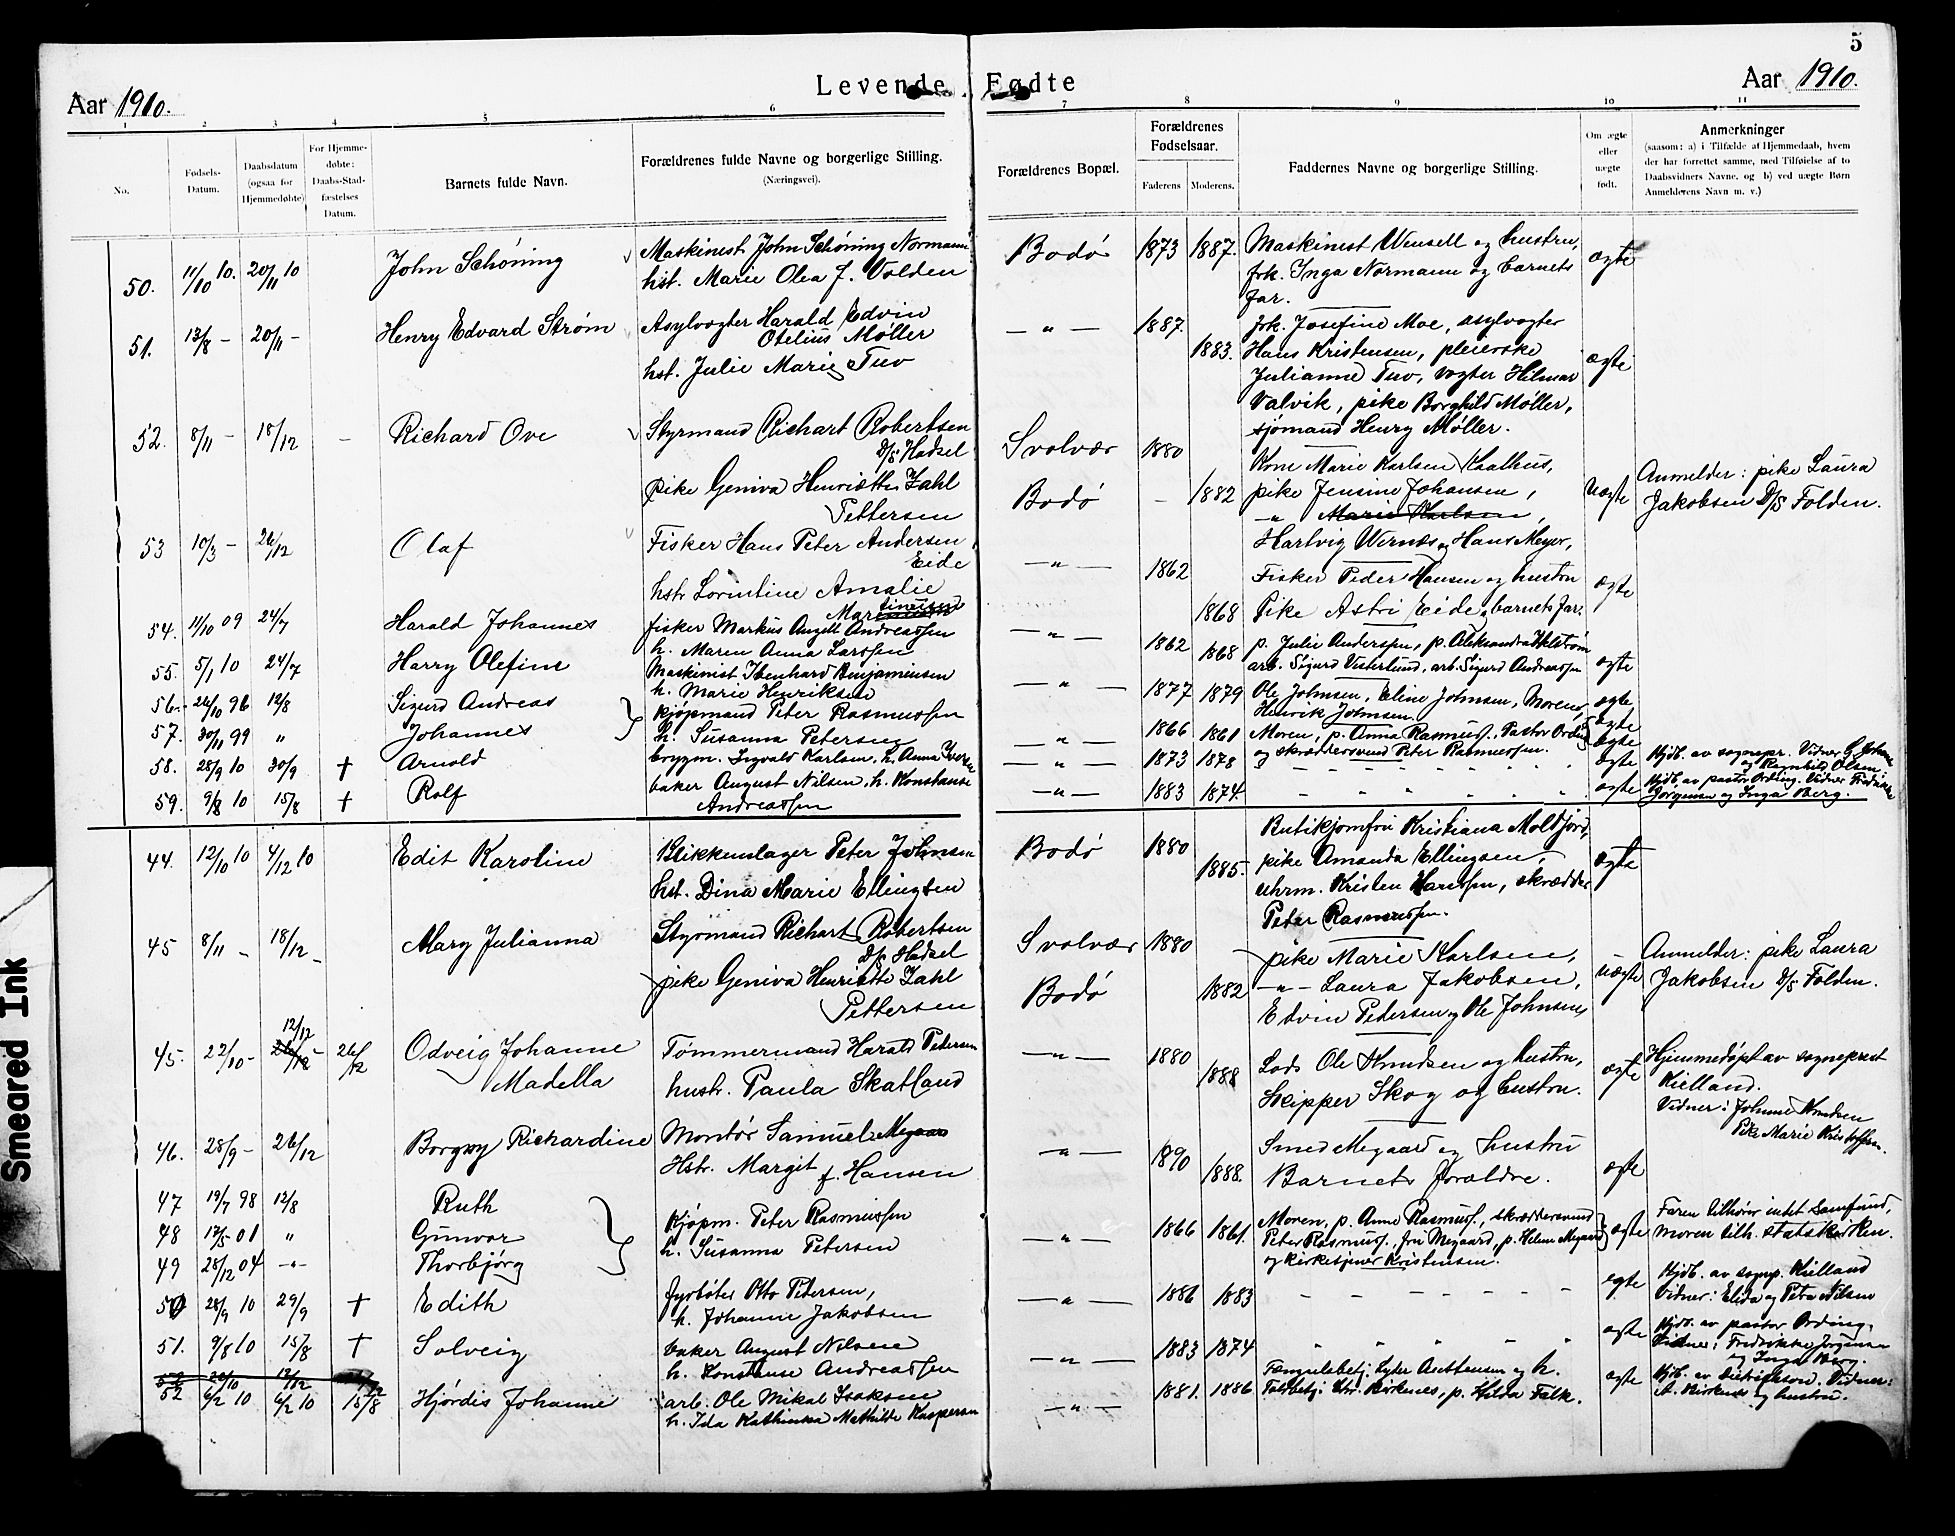 5
Levende Fødte
Aar 1910.
Aar 1910.
1 2 3 4 5 6 7 8 9 10 11
No.
Fødsels-
Datum.
Daabsdatum
(ogsaa for
Hjemmedøbte)
For Hjemme-
døbte:
Daabs-Stad-
fæstelses
Datum.
Barnets fulde Navn.
Forældrenes fulde Navne og borgerlige Stilling.
(Næringsvei).
Forældrenes Bopæl.
Forældrenes
Fødselsaar.
Faderens
Moderens.
Faddernes Navne og borgerlige Stilling.
Om ægte
eller
uægte
født.
Anmerkninger
(saasom: a) i Tilfælde af Hjemmedaab, hvem
der har forrettet samme, med Tilføielse af to
Daabsvidners Navne, og b) ved uægte Børn
Anmelderens Navn m. v.)
50. 11/10 10. 20/11 10 John Schöning
Maskinist John Schöning Normann
hst. Marie Olea f. Volden
Bodö 1873 1887.
Maskinist Wensell og hustru,
frk. Inga Normann og barnets
far.
ægte
51. 13/8 - 20/11 - Henry Edvard Strøm
Asylvogter Harald Edvin
Otelius Møller
hst. Julie Marie Tuv
— " — 1887. 1883.
frk. Josefine Moe, asylvogter
Hans Kristensen, pleierske
Julianne Tuv, vogter Hilmar
Valvik, pike Borghild Møller,
sjømand Henry Møller.
ægte
52. 8/11 - 18/12 - Richard Ove
Styrmand Richart Robertsen
D/S Hadsel
pike Geniva Henriette Zahl
Pettersen
Svolvær 1880
Bodö - 1882
Kone Marie Karlsen Kaalhus,
pike Jensine Johansen,
-"- Marie Karlsen,
Hartvig Wirnæs og Hans Meyer,
uægte
Anmelder: pike Laura
Jakobsen D/S Folden.
53 10/3 - 26/12 Olaf
Fisker Hans Peter Andersen
Eide
hstr Lorentine Amalie
— " — 1862 1868
Fisker Peder Hansen og hustru
Pike Astri Eide, barnets far.
ægte
54. 11/10 09 24/7 Harald Johannes
fisker Markus Angell Andreassen
h. Maren Anna Larssen
— " — 1862 1868
p. Julie Anderssen, p. Aleksandra Ekstrøm
arb. Sigurd Vesterlund, arb. Sigurd Andreassen
ægte
55. 5/1 10 24/7 Harry Olefim
Maskinist Ibenhard Benjaminsen
h. Marie Henriksen
— " — 1877 1879
Ole Johnsen, Eline Johnsen, Moren,
Henrik Johnsen.
ægte
56. 26/10 96 12/8 Sigurd Andreas
57. 30/11 99 " Johannes
kjøpmand Peter Rasmussen
h. Susanna Petersen
— " — 1866 1861
Moren, p. Anna Rasmuss. Pastor Ording
og skræddersvend Peter Rasmussen.
ægte
ægte
58. 28/9 10 30/9 † Arnold
brygm. Ingvald Karlsen, h. Anna Iversen
— " — 1873 1878
ægte
Hjdb. av sognepr. Vidner G. Johnsen
og Ragnhild Olsen
59. 9/8 10 15/8 † Rolf
baker August Nilsen, h. Konstanse
Andreassen
— " — 1883 1874.
ægte
Hjdb av pastor Ording. Vidner Fredrikke
Jørgensen og Inga Berg.
44. 12/10 10 4/12 10 Edit Karoline
Blikkenslager Peter Johnsen
hst. Dina Marie Ellingsen
Bodö 1880 1885.
Butikjomfru Kristiana Moldjord,
pike Amanda Ellingsen,
uhrm. Kristen Hanssen, skrædder
Peter Rasmussen.
ægte
45 8/11 - 18/12 - Mary Julianna
Styrmand Richart Robertsen
D/S Hadsel
pike Geniva Henriette Zahl
Pettersen
Svolvær 1880
Bodö 1882
pike Marie Karlsen,
-"- Laura Jakobsen,
Edvin Pedersen og Ole Johnsen,
uægte
Anmelder: pike Laura
Jakobsen D/S Folden.
45. 22/10 - 12/12 26/12 - 26/12 Odveig Johanne
Madella
Tømmermand Harald Pedersen
hustr. Paula Skatland
— " — 1880 1888
Lods Ole Knudsen og hustru,
Skipper Skog og hustru.
ægte
Hjemmedøpt av sogneprest
Kielland.
Vidner: Johanne Knudsen
Pike Marie Kristoffersen.
46. 28/9 - 26/12 Borgny Richardine
Montør Samuel Megaard
Hstr. Margit f. Hansen
— " — 1890 1888.
Smed Megaard og hustru
Barnets forældre.
ægte
47 19/7 98 12/8 Ruth
48 17/5 01 " Gunvor
49 28/12 04 -"- Thorbjørg
Kjøpm. Peter Rasmussen
h. Susanna Petersen
— " — 1866 1861.
Moren, p. Anna Rasmuss., skræddersvend
Peter Rasmuss., fru Megaard, p. Helene Megaard
og kirketjener Kristensen.
ægte
Faren tilhører intet Samfund,
moren tilh. statskirken.
50 28/9 10 29/9 † Edith
fyrbøter Otto Petersen,
h. Johanne Jakobsen
— " — 1886 1883
egte
Hjdb. av sognep. Kielland
Vidner: Elida og Petra Nilsen
51. 9/8 10 15/8 † Solveig
baker August Nilsen
h. Konstanse Andreassen
— " — 1883 1874
ægte
Hjdb. av pastor Ording,
Vidner: Fredrikke Jørgensen
og Inga Berg.
52 6/2 10 6/2 10 15/8 Hjørdis Johanne
arb. Ole Mikal Isaksen
h. Ida Kathinka Mathilde Kaspersen
— " — 1881. 1886
Fængselsbetj. Lyder Austensen og h.
Toldbetj. Chr. Kirkenes, p. Hilda Falk.
ægte
Hjdb. av Didriksen. Vidner:
A. Kirkenes og hustru.
Smeared Ink